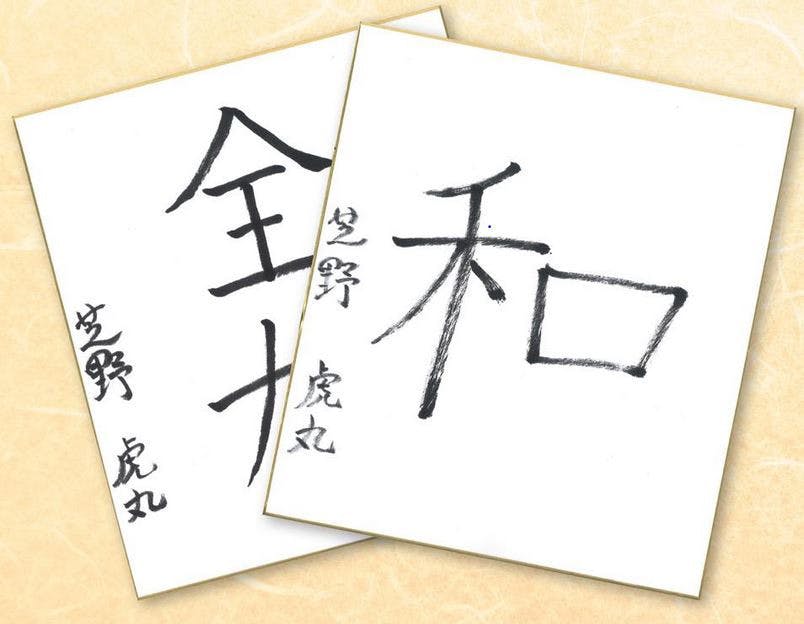 全
芝野 虎丸
和
芝野 虎丸